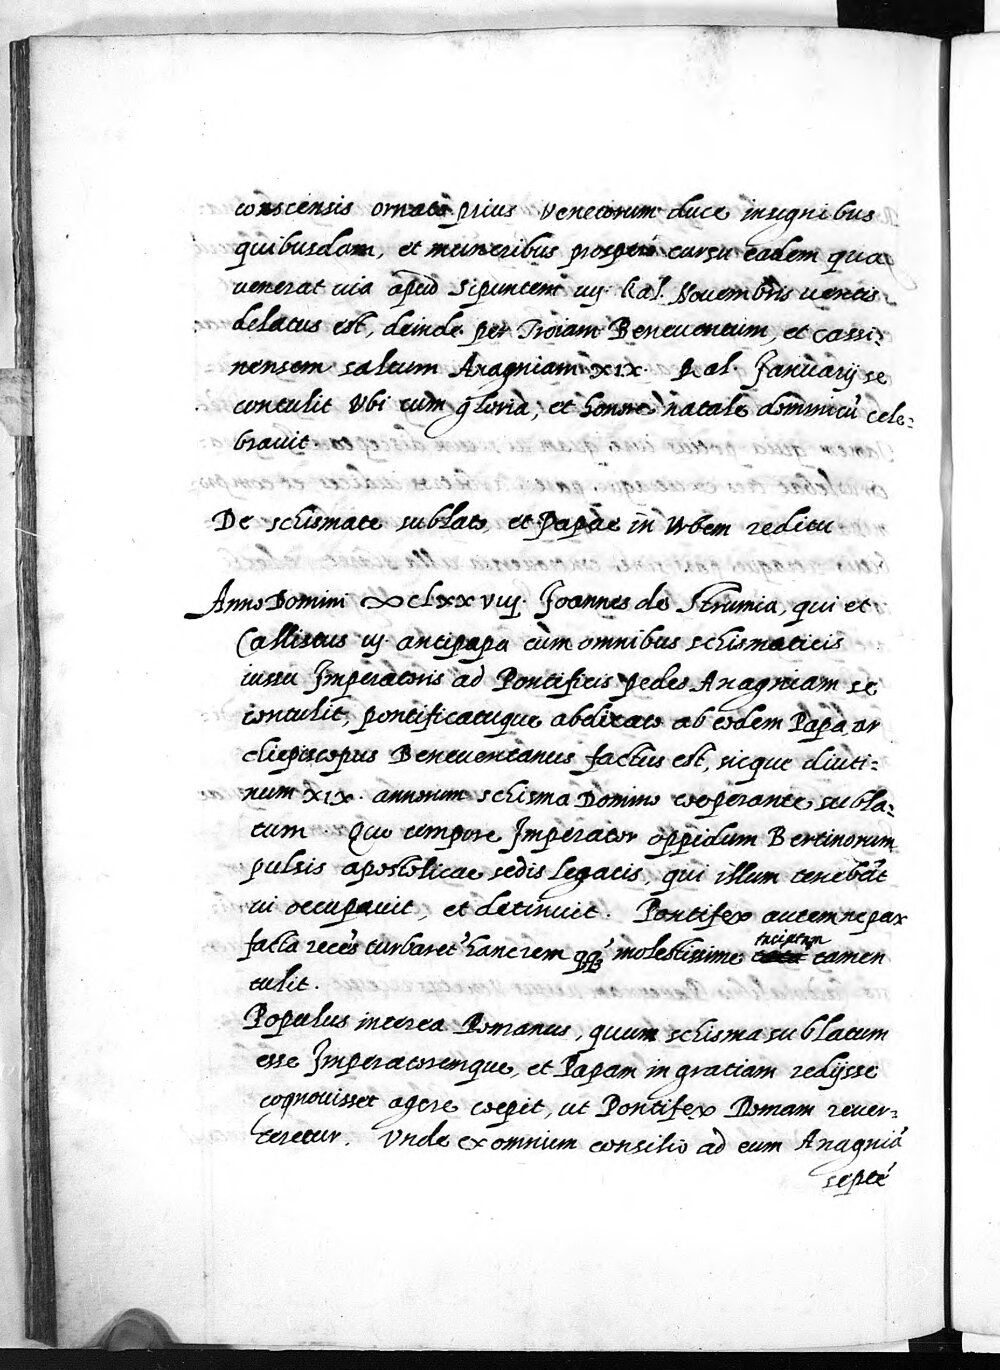 conscensis ornato prius Venetorum duce insignibus
quibusdam, et muneribus prospero cursu eadem qua
venerat via apud Sipuntem iiij. Kal. Novembris ventis
delatus est, deinde per Troiam Beneventum, et Cassi-
nensem saltum Anagniam XIX. Kal. Januarij se
contulit Vbi cum gloria, et honore natale dominicũ cele-
bravit.
De schismate sublato, et Papae in Vrbem reditu
Anno Domini ∞CLXXVIIJ. Joannes de Strumia, qui et
Callistus iij antipapa cum omnibus schismaticis
iussu Imperatoris ad Pontificis pedes Anagniam se
contulit, pontificatuque abdicato ab eodem Papa ar
chiepiscopus Beneventanus factus est, sicque diuti-
num XIX. annorum schisma Domino cooperante subla-
tum. Quo tempore Imperator oppidum Bertinorum
pulsis apostolicae sedis legatis, qui illum tenebãt
vi occupavit, et detinuit. Pontifex autem ne pax
facta recẽs turbaret hanc rem molestissime tamen
tulit.
Populus interea Romanus, quum schisma sublatum
esse Imperatoremque, et Papam in gratiam redijsse
cognovisset agere coepit, ut Pontifex Romam rever-
teretur. Vnde ex omnium consilio ad eum Anagniã
septẽ